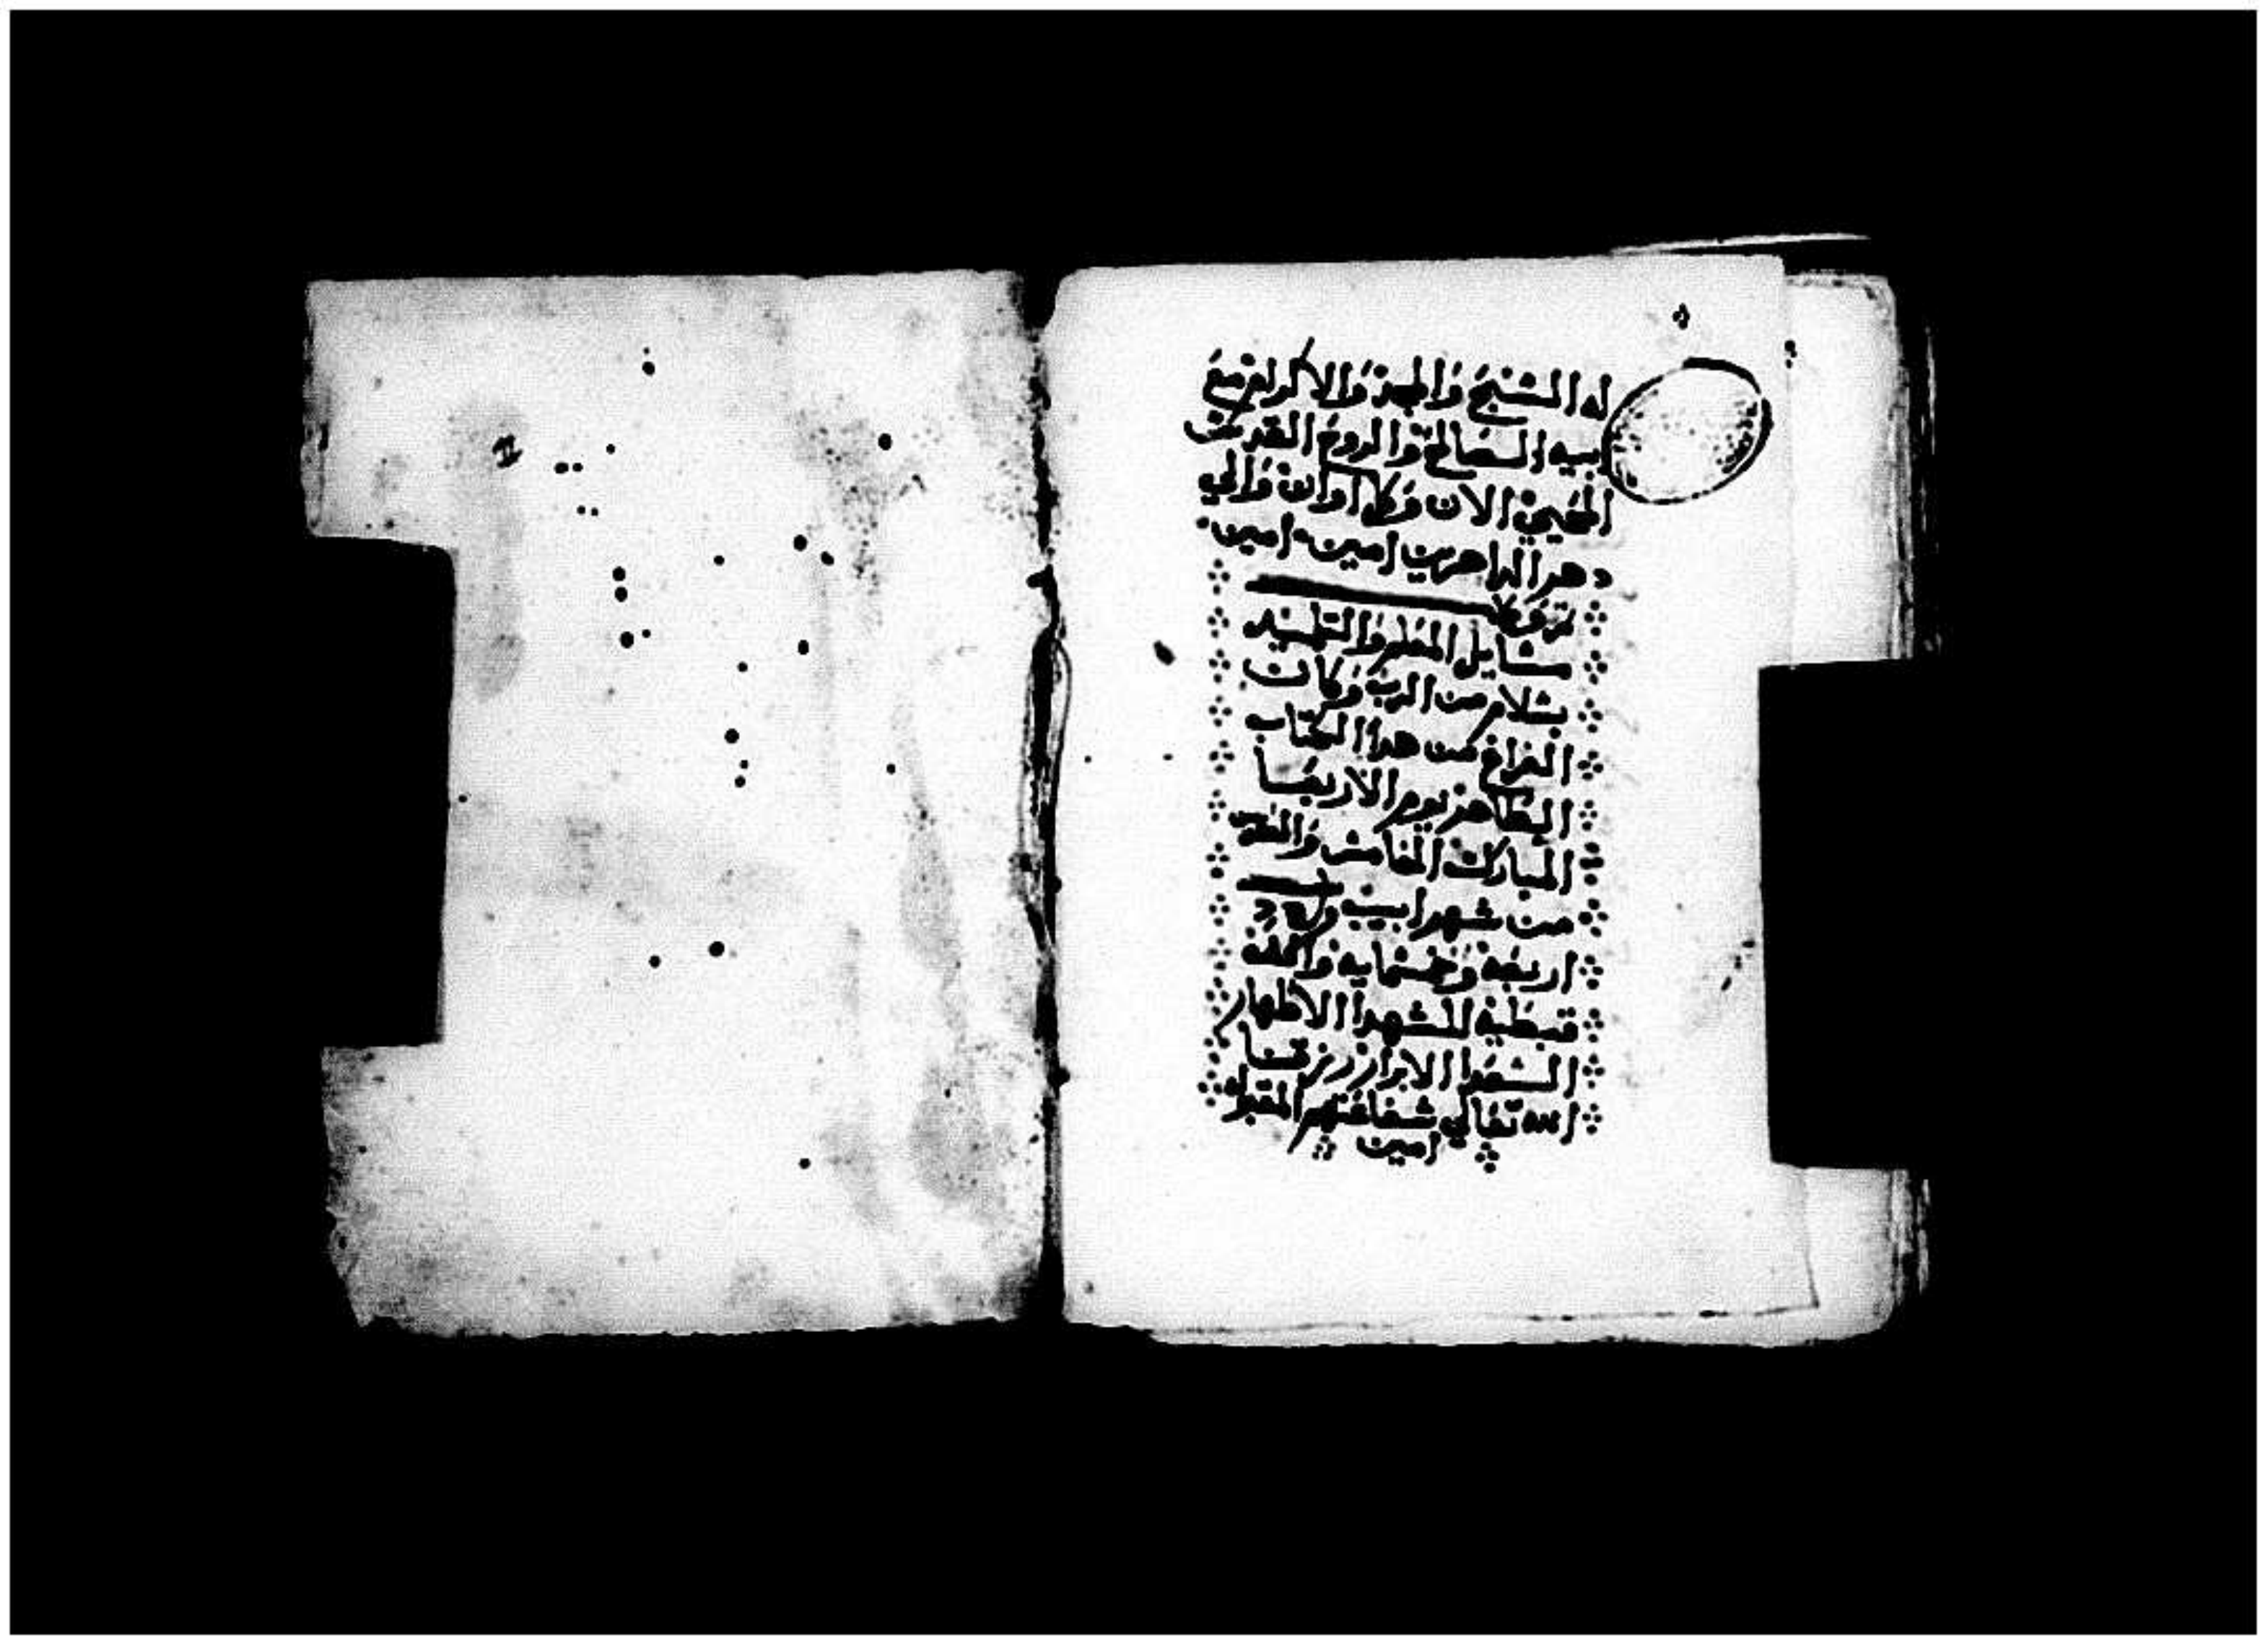 له التسبيح والمجد والاكرام مع
ابيه الصالح والروح القدس
المحيي الان وكل اوان والي
دهر الداهرين امين امين
مشايل المعلم والتلميد
بسلام من الرب وكان
الفراغ من هدا الكتاب
الطاهر يوم الاربعا
المبارك الخامس والعشرين
من شهر ابيب
اربعة وخمسمايه والف
قبطية للشهدا الاطهار
السعدا الابرار رزقنا
الله تعالي شفاعتهم المقبوله
امين